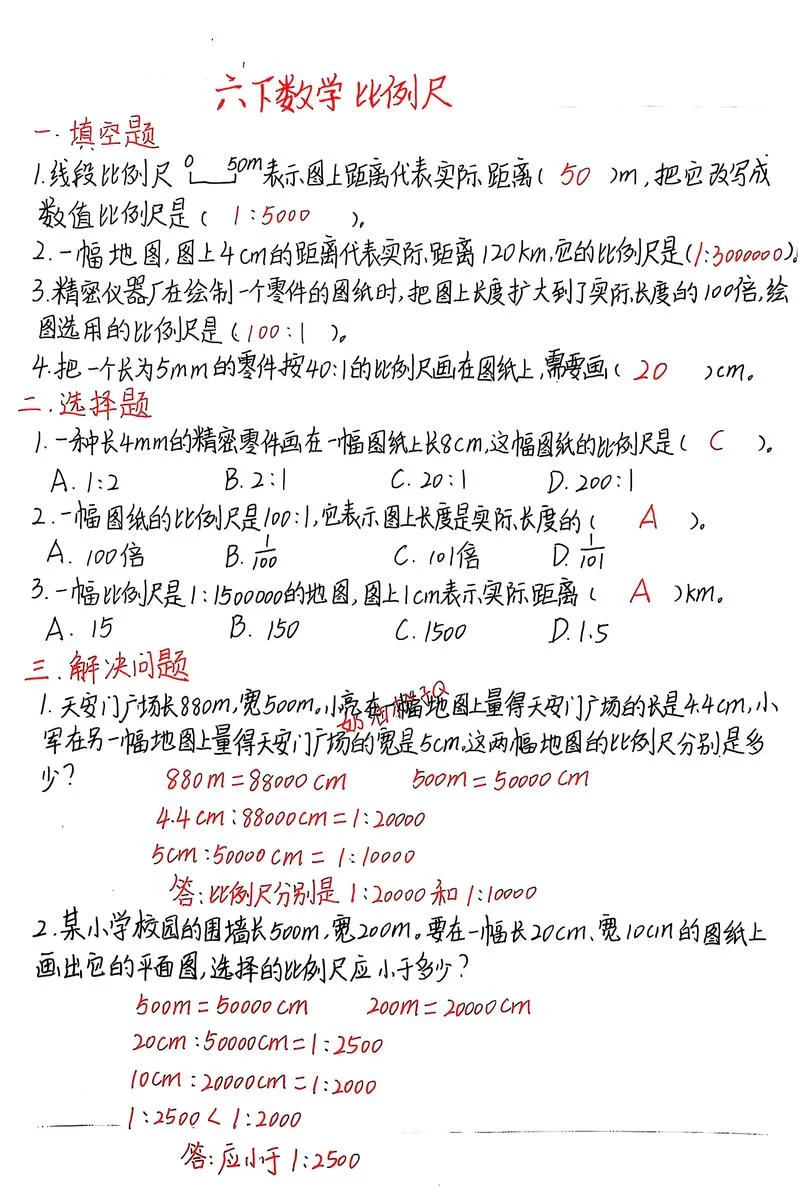 六下数学 比例尺
一.填空题
1.线段比例尺 0 50m 表示图上距离代表实际距离( 50 )m,把它改写成
数值比例尺是( 1:5000 )。
2.一幅地图,图上4cm的距离代表实际距离120km,它的比例尺是(1:3000000)。
3.精密仪器厂在绘制一个零件的图纸时,把图上长度扩大到了实际长度的100倍,绘
图选用的比例尺是(100:1)。
4.把一个长为5mm的零件按40:1的比例尺画在图纸上,需要画( 20 )cm。
二.选择题
1.一种长4mm的精密零件画在一幅图纸上长8cm,这幅图纸的比例尺是( C )。
A.1:2 B.2:1 C.20:1 D.200:1
2.一幅图纸的比例尺是100:1,它表示图上长度是实际长度的( A )。
A.100倍 B.1/100 C.101倍 D.1/101
3.一幅比例尺是1:1500000的地图,图上1cm表示实际距离( A )km。
A.15 B.150 C.1500 D.1.5
三.解决问题
1.天安门广场长880m,宽500m。小亮在一幅地图上量得天安门广场的长是4.4cm,小
军在另一幅地图上量得天安门广场的宽是5cm。这两幅地图的比例尺分别是多
少? 880m=88000cm 500m=50000cm
4.4cm:88000cm=1:20000
5cm:50000cm=1:10000
答:比例尺分别是1:20000和1:10000
2.某小学校园的围墙长500m,宽200m。要在一幅长20cm、宽10cm的图纸上
画出它的平面图,选择的比例尺应小于多少?
500m=50000cm 200m=20000cm
20cm:50000cm=1:2500
10cm:20000cm=1:2000
1:2500<1:2000
答:应小于1:2500